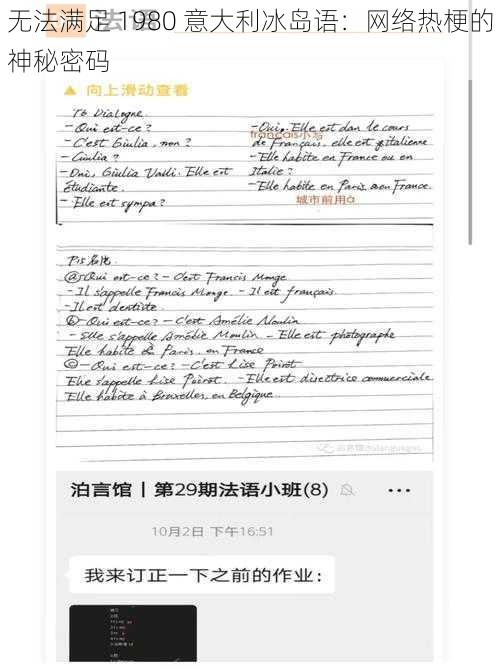 无法满足 1980 意大利冰岛语：网络热梗的
神秘密码
法语
向上滑动查看
T6 Dialogne.
- Qui est-ce ?
- C'est Giulia, non ?
- Giulia ?
- Oui, Giulia Valli. Elle est
étudiante.
- Elle est sympa ?
- Oui. Elle est dan le cours
français小写
de Français, elle est italienne
- Elle habite en France ou en
Italie ?
- Elle habite en Paris, en France.
城市前用à
P15
ⓐ Qui est-ce ? - C'est Francis Monge
- Il s'appelle Francis Monge. - Il est français.
- Il est dentiste.
ⓑ - Qui est-ce ? - C'est Amélie Moulin
- Elle s'appelle Amélie Moulin - Elle est photographe
Elle habite à Paris, en France
ⓒ - Qui est-ce ? - C'est Lise Poirot
Elle s'appelle Lise Poirot. - Elle est directrice commerciale
Elle habite à Bruxelles, en Belgique
泊言馆 | 第29期法语小班(8)
10月2日 下午16:51
我来订正一下之前的作业：